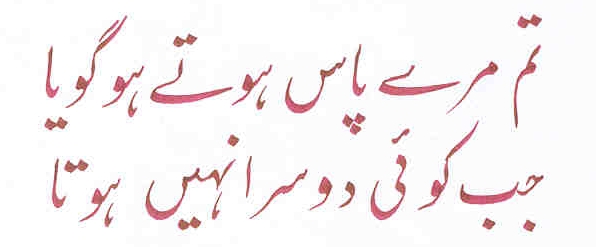 تم مرے پاس ہوتے ہو گویا
جب کوئی دوسرا نہیں ہوتا